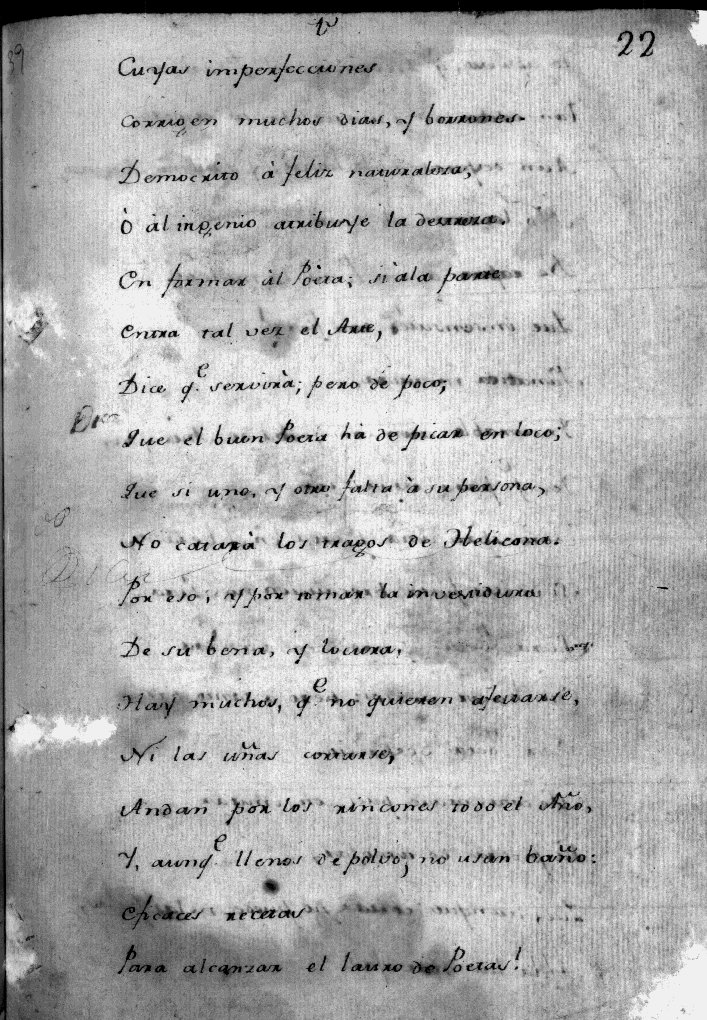 22
Cuyas imperfecciones
corrigen muchos dias, y borrones.
Democrito à feliz naturaleza,
Ò àl ingenio atribuye la destreza.
En formar àl Pòeta; si àla parte
entra tal vez el Arte,
Dice q.e servirà; pero de poco;
Que el buen Poeta hà de picar en loco;
Que si uno, y otro falta à su persona,
No catarà los tragos de Helicona.
Por eso; y por tomar la investidura
De su bena, y locura,
Hay muchos, q.e no quieren afeitarse,
Ni las uñas cortarse,
Andan por los rincones todo el Año,
Y, aunq.e llenos de polvo, no usan baño:
eficaces recetas
Para alcanzar el lauro de Poetas!